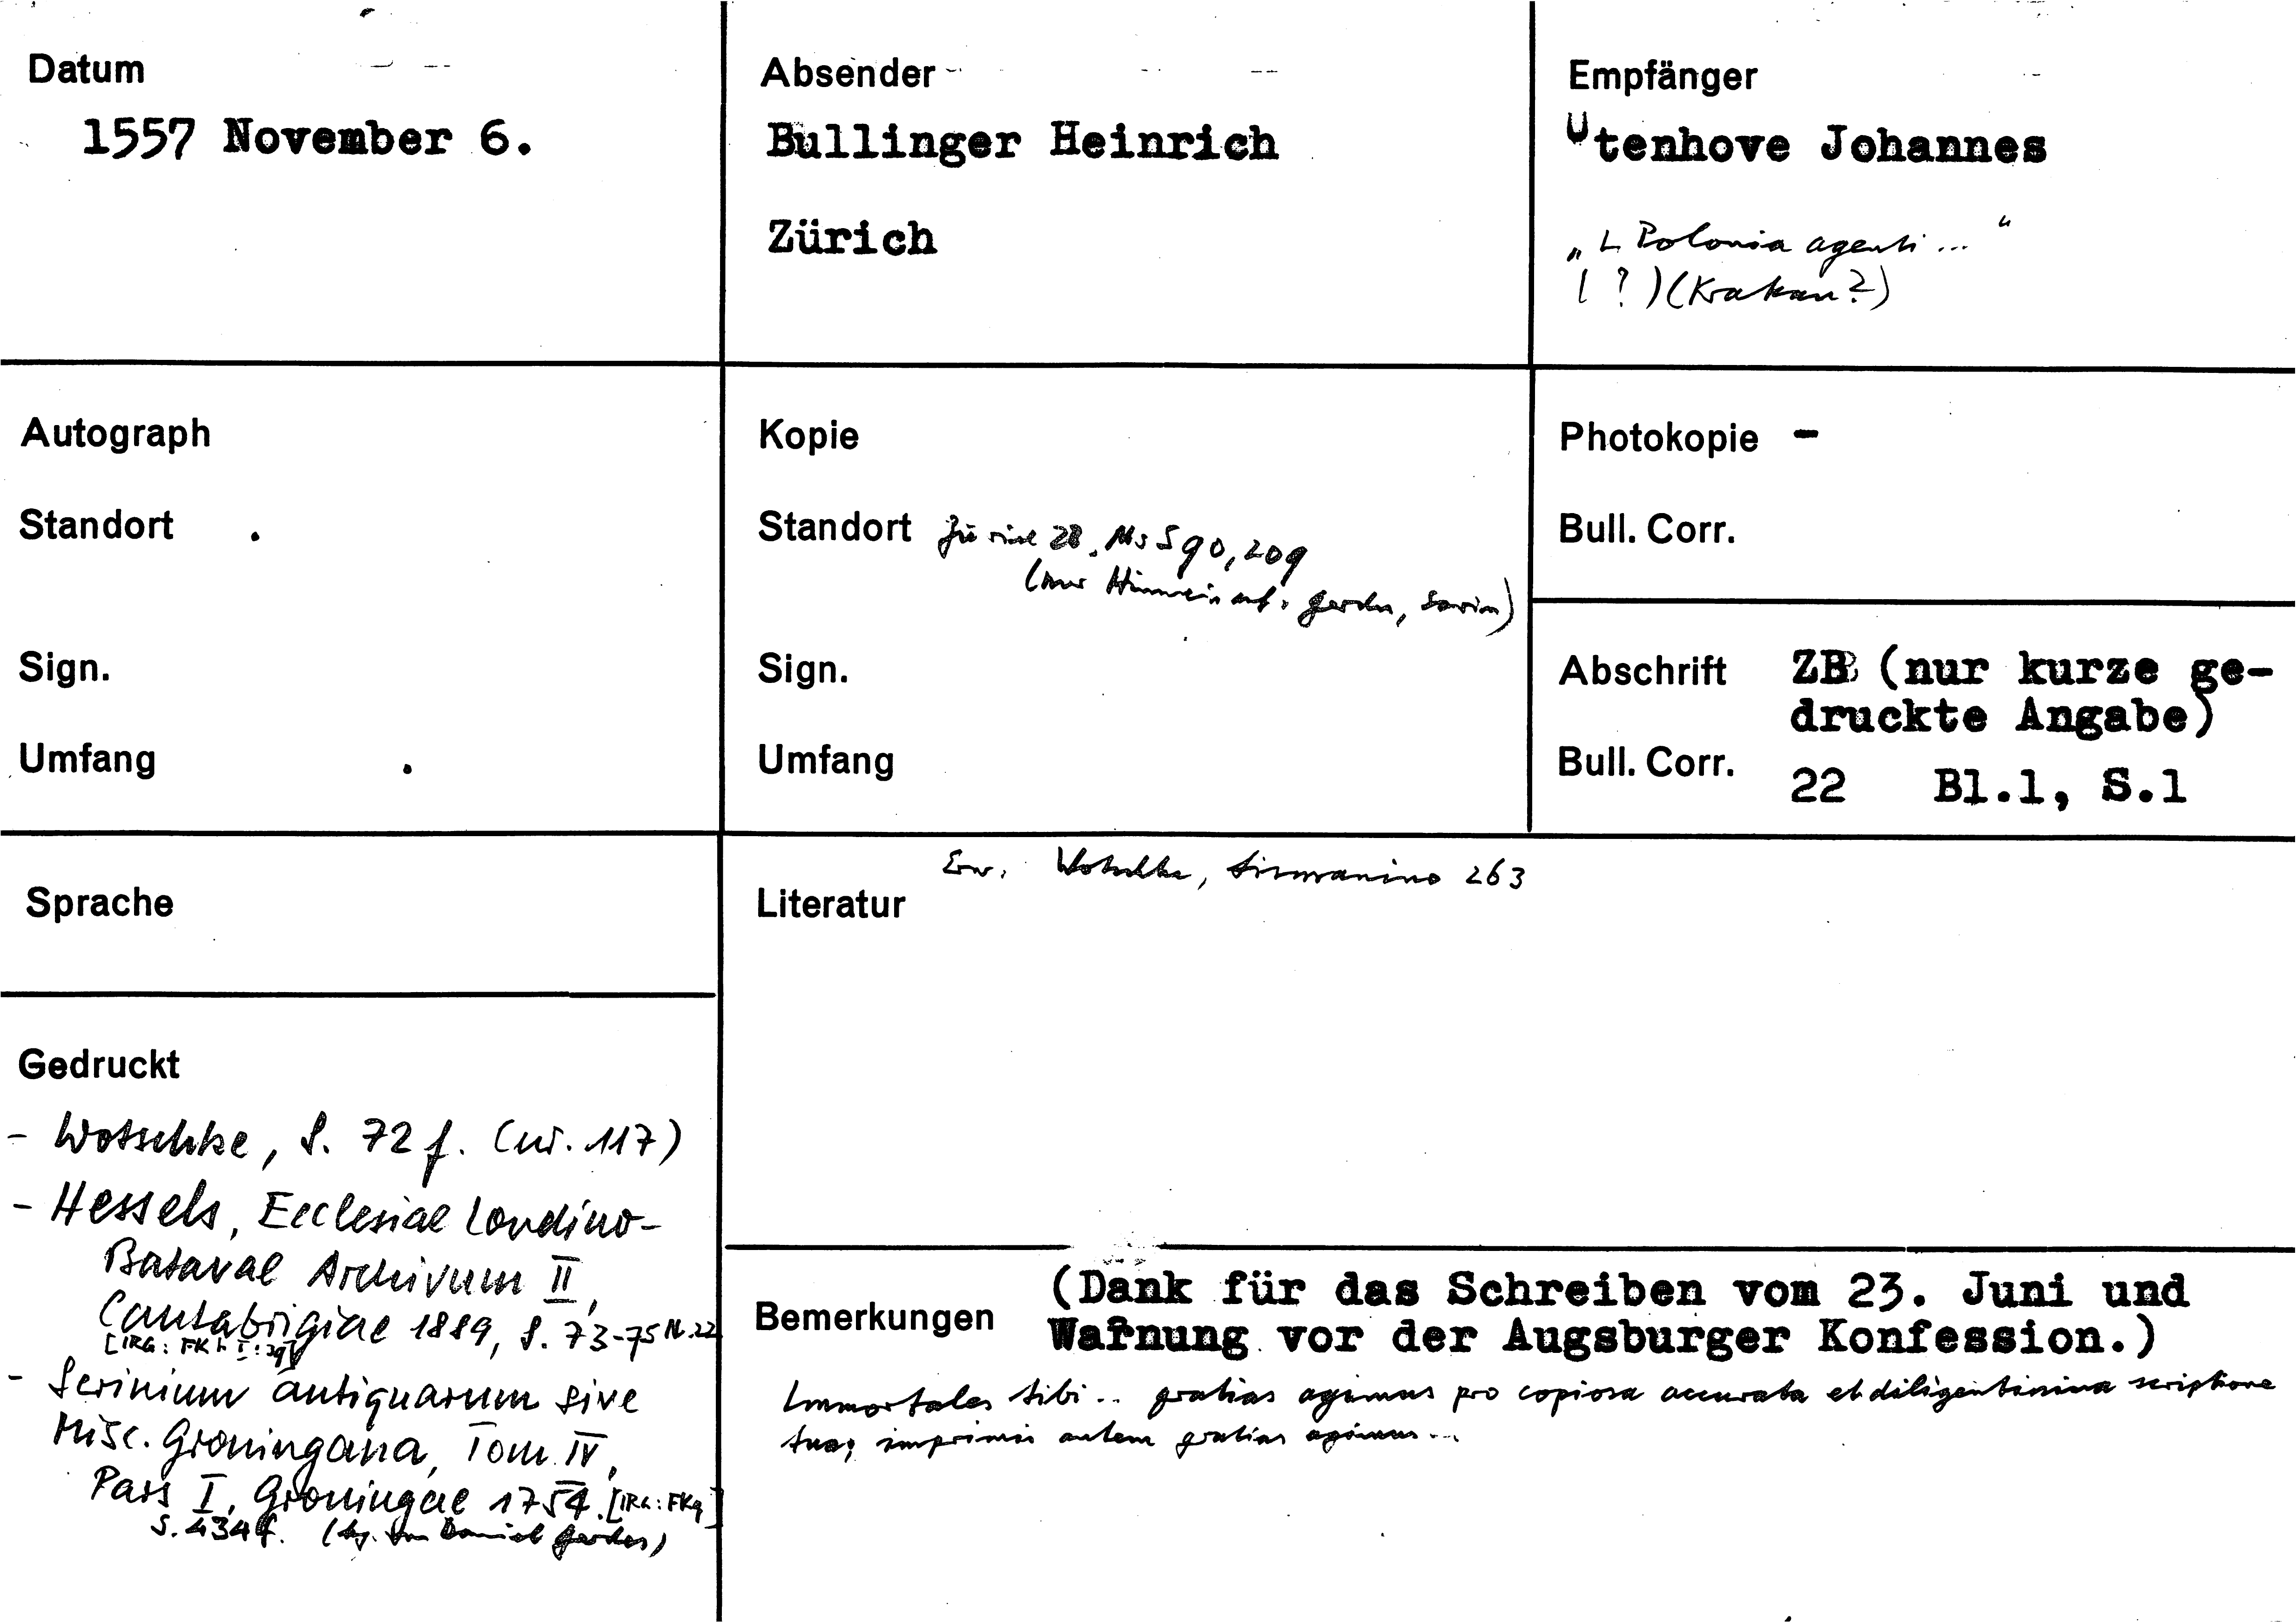 Datum
1557 November 6.
Absender
Bullinger Heinrich
Zürich
Empfänger
Utenhove Johannes
"Polonia agenti ..."
(?) (Krakau?)
Autograph
Standort
Sign.
Umfang
Kopie
Standort Zürich ZB, Ms S 90, 209
(nur Hinweis auf: Gerdes, Scrin)
Sign.
Umfang
Photokopie -
Bull. Corr.
Abschrift ZB (nur kurze ge-
druckte Angabe)
Bull. Corr. 22 Bl.1, S.1
Sprache
Gedruckt
- Wotschke, S. 72 f. (nr. 117)
- Hessels, Ecclesiae Londino-
Batavae Archivum II,
Cantabrigiae 1889, S. 73-75 N. 22
[IRG: FK
- Scrinium antiquarum sive
Misc. Groningana, Tom. IV,
Pars I, Groningae 1754. [IRG: FKg]
S. 434 f. (hg. von Daniel Gerdes)
Literatur
Erw. Wotschke, Lismanino 263
Bemerkungen
(Dank für das Schreiben vom 23. Juni und
Warnung vor der Augsburger Konfession.)
Immortales tibi .. gratias agimus pro copiosa accurata et diligentissima scriptione
tua; imprimis autem gratias agimus ...